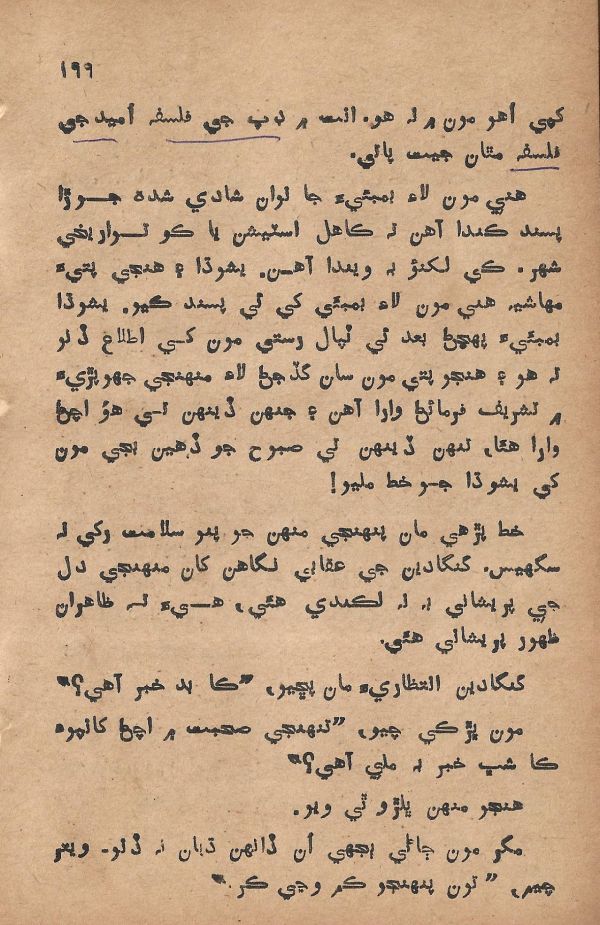 ۱۹۹
کهي اُهو مون ۾ نه هو. انت ۾ ڊپ جي فلسفہ اُميد جي
فلسفہ مٿان جيت پاتي.
هتي مون لاءِ بمبئيءَ جا نوان شادي شده جوڙا
پسند ڪندا آهن ته ڪاهل اسٽيشن يا ڪو تواريخي
شهر. ڪي لکنؤ به ويندا آهن. يشوڌا ۽ هنجي پتيءَ
مهاشيہ هني مون لاءِ بمبئي کي ئي پسند ڪيو. يشوڌا
بمبئيءَ پهچڻ بعد ئي ٽپال رستي مون کي اطلاع ڏنو
ته هو ۽ هنجو پتي مون سان گڏجڻ لاءِ منهنجي جهوپڙيءَ
۾ تشريف فرمائڻ وارا آهن ۽ جنهن ڏينهن تي هوُ اچڻ
وارا هئا، تنهن ڏينهن تي صبوح جو ڏهين بجي مون
کي يشوڌا جو خط مليو!
خط پڙهي مان پنهنجي منهن جو پنو سلامت رکي نہ
سگهيس. گنگادين جي عقابي نگاهن کان منهنجي دل
جي پريشاني به نہ لڪندي هئي، هيءَ ته ظاهران
ظهور پريشاني هئي.
گنگادين انتظاريءَ مان پڇيو، ”ڪا بد خبر آهي؟“
مون پڙڪي چيو، ”تنهنجي صحبت ۾ اچڻ کانپوءِ
ڪا شڀ خبر به ملي آهي؟“
هنجو منهن پلڙو ٿي ويو.
مگر مون ڄاڻي ٻجهي اُن ڏانهن ڌيان نہ ڏنو۔ ويتر
چيم، ”تون پنهنجو ڪم وڃي ڪر.“